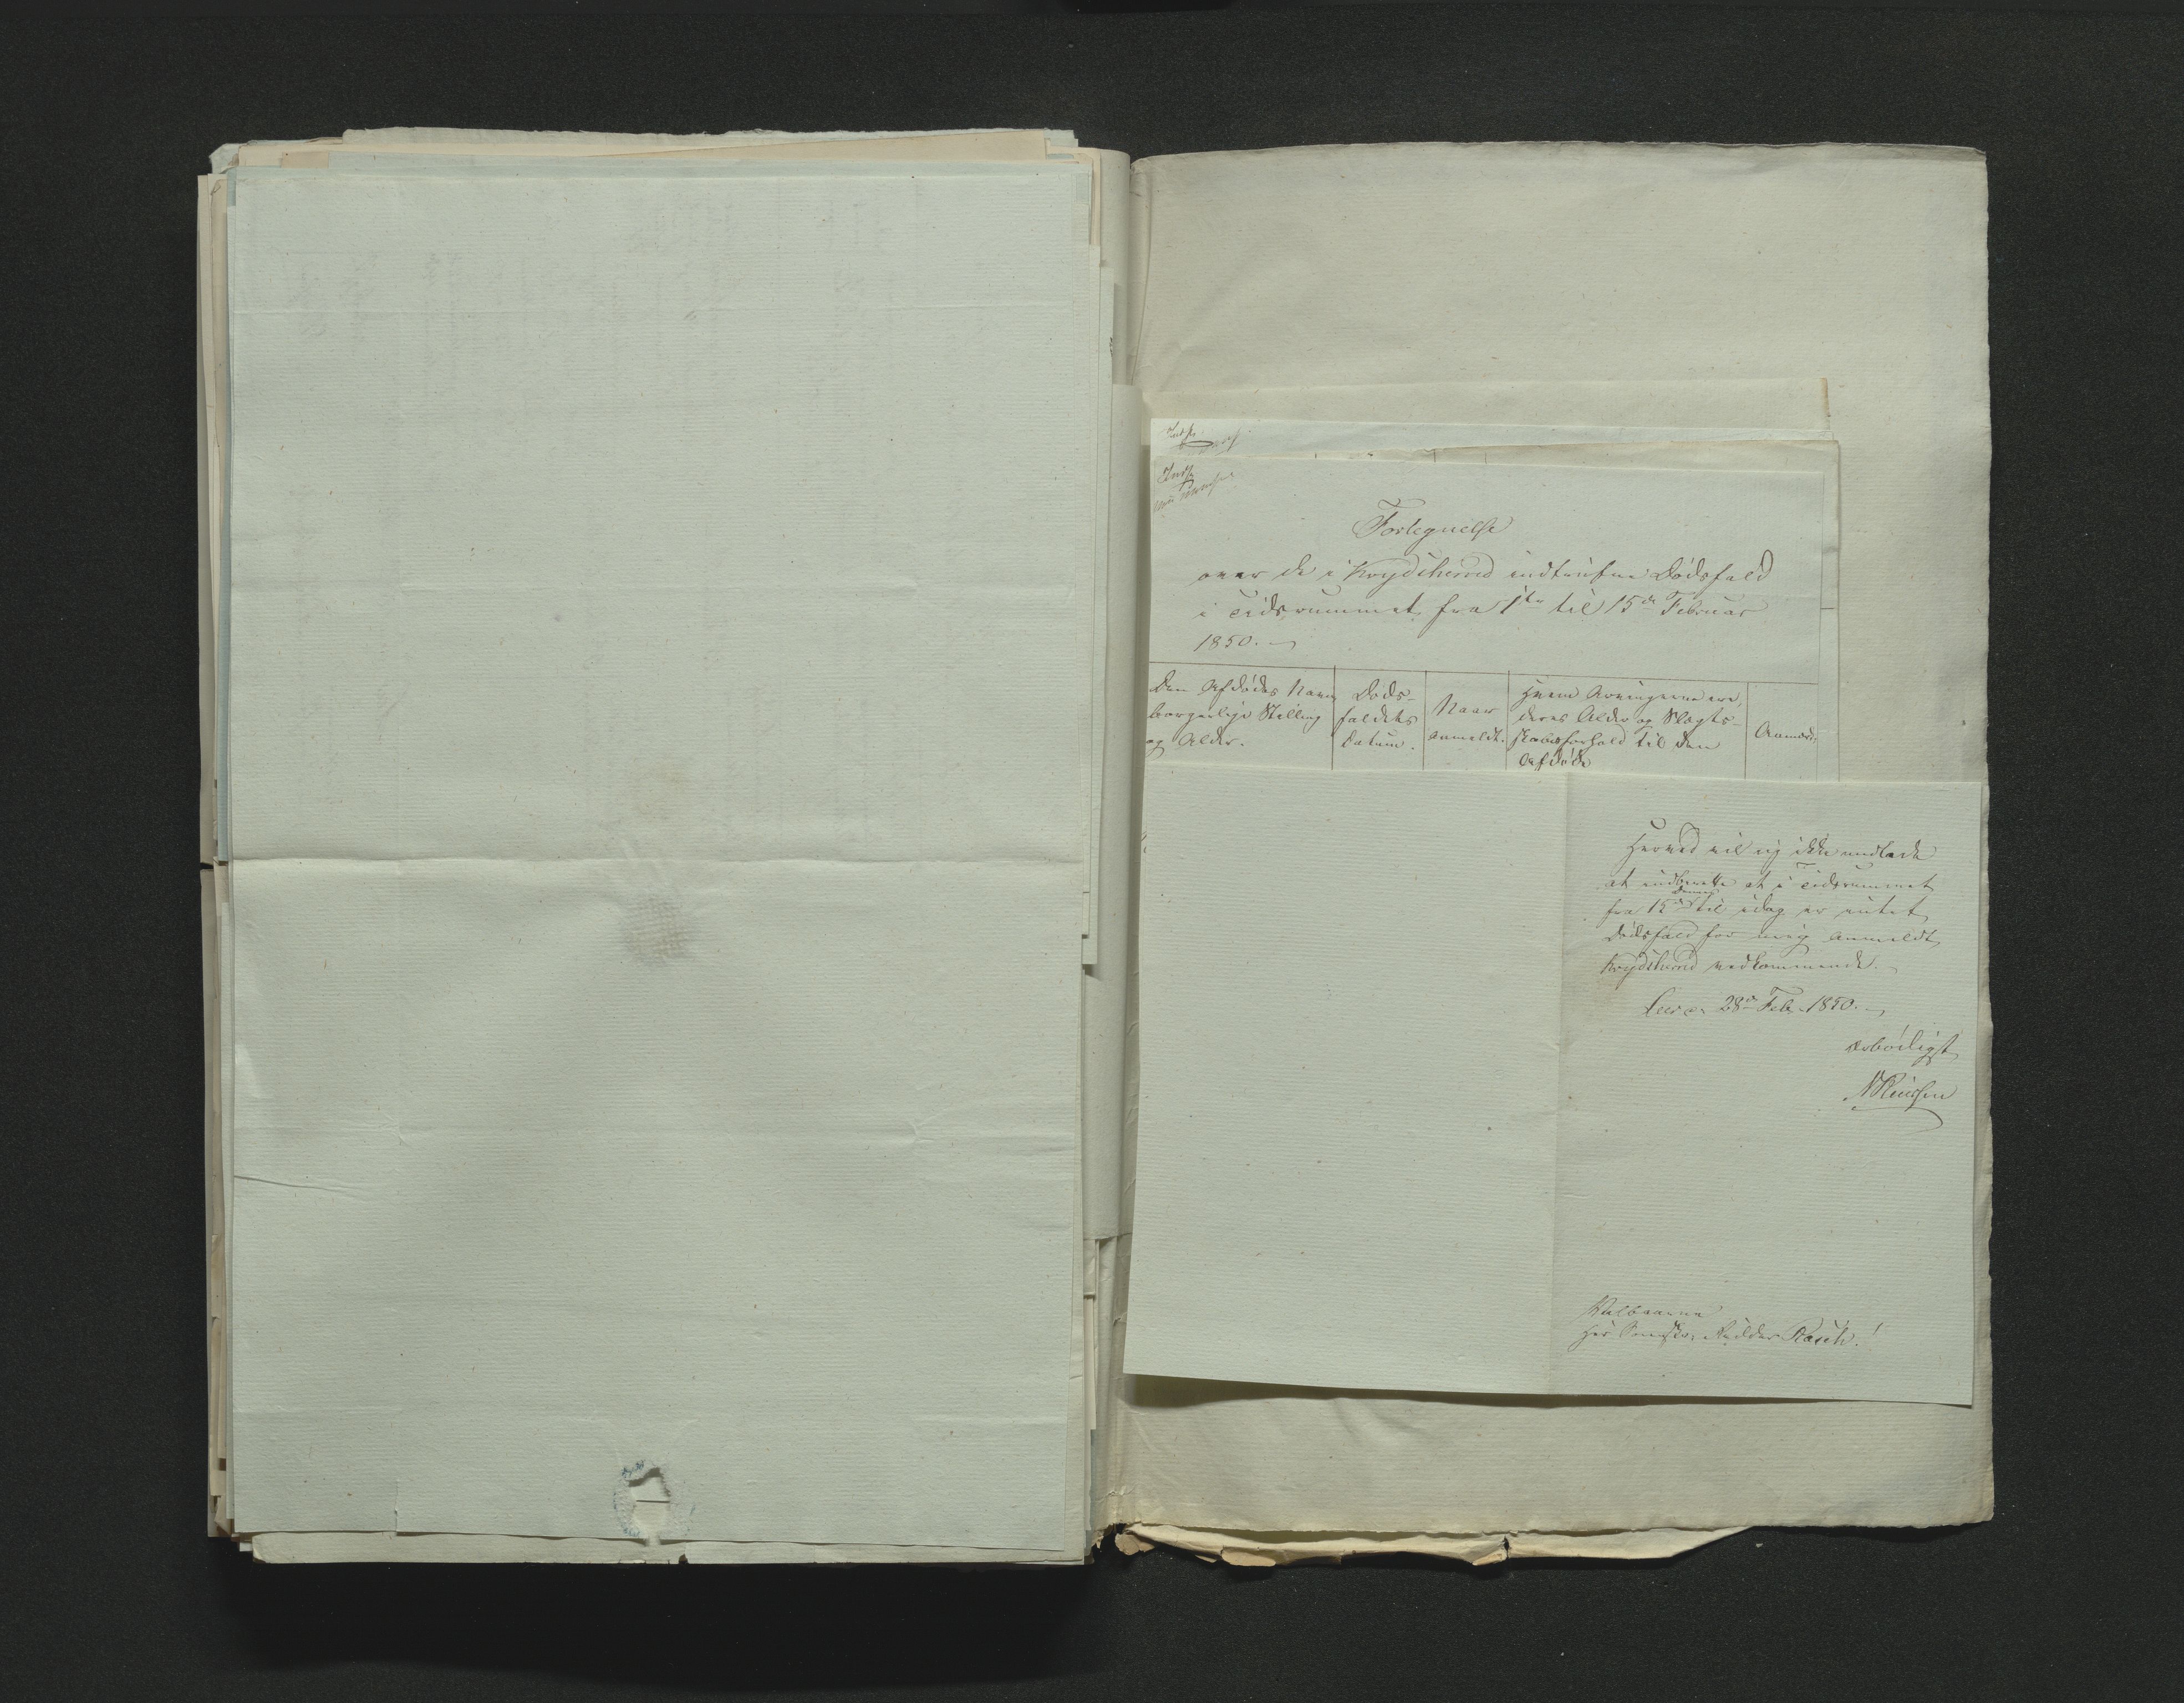 Indf.
Indf.
Fortegnelse
over de i Krydsherred indtrufne Dødsfald
i Tidsrummet fra 1ste til 15de Februar
1850.
Den Afdødes Navn
borgerlige Stilling
og Alder.
Døds-
faldets
Datum.
Naar
anmeldt.
Hvem Arvingerne ere,
deres Alder og Slægts-
skabsforhold til den
Afdøde
Anmærk:
Herved vil jeg ikke undlade
at indberette at i Tidsrummet
fra 15de dennes til idag er intet
Dødsfald for mig anmeldt
Krydsherred vedkommende.
28de Feb. 1850.
ærbødigst
Velbaarne
Hr Sorenskr: Ridder Rasch!